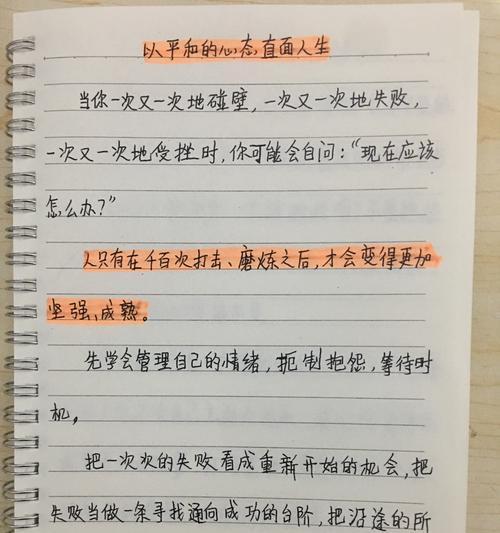 以平和的心态直面人生
当你一次又一次地碰壁，一次又一次地失败，
一次又一次地受挫时，你可能会自问：“现在应该
怎么办？”
人只有在千百次打击、磨炼之后，才会变得更加
坚强、成熟。
先学会管理自己的情绪，扼制抱怨，等待时
机。
把一次次的失败看成重新开始的机会，把
失败当做一条寻找通向成功的台阶，把沿途的所